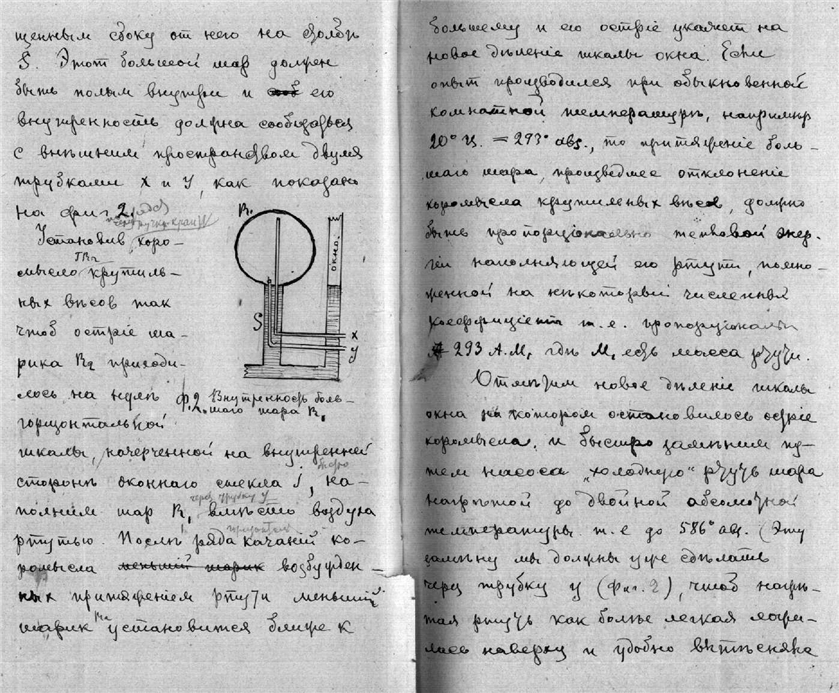 щеннымъ сбоку от него на столбѣ
S. Этот большой шар должен
быть полым внутри и его
внутренность должна сообщаться
с внѣшним пространством двумя
трубками X и У, как показано
на фиг 2.
Установив коро-
мысло крутиль-
ных вѣсов так
чтоб остріе ша-
рика R₂ приходи-
лось на нулѣ
горизонтальной
R₁
окно.
S
x
y
ф.2. Внутренность боль-
шого шара R₁
шкалы, начерченной на внутренней
сторонѣ оконнаго стекла i, на-
через трубку У
полним шар R₁ вмѣсто воздуха
ртутью. Послѣ ряда качаній ко-
ромысла меньшій шарик возбужден-
ных притяженіем ртути меньшій
шарик R₂ установится ближе к
большему и его остріе укажет на
новое дѣленіе шкалы окна. Если
опыт производился при обыкновенной
комнатной температурѣ, напримѣр
20° Ц. = 293° абс., то притяженіе боль-
шаго шара, произведшее отклоненіе
коромысла крутильных вѣсов, должно
быть пропорціонально тепловой энер-
гіи наполняющей его ртути, помно-
женной на нѣкоторый численный
коеффиціент т.е. пропорціонально
293 А.М₁ гдѣ М₁ есть масса ртути.
Отмѣтим новое дѣленіе шкалы
окна на котором остановилось остріе
коромысла, и быстро замѣним пу-
тем насоса „холодную“ ртуть шара
нагрѣтой до двойной абсолютной
температуры т.е до 586° абс. (Эту
замѣну мы должны уже сдѣлать
через трубку У (фиг. 2), чтоб нагрѣ-
тая ртуть как болѣе легкая
лась наверху и удобно вытѣсняла